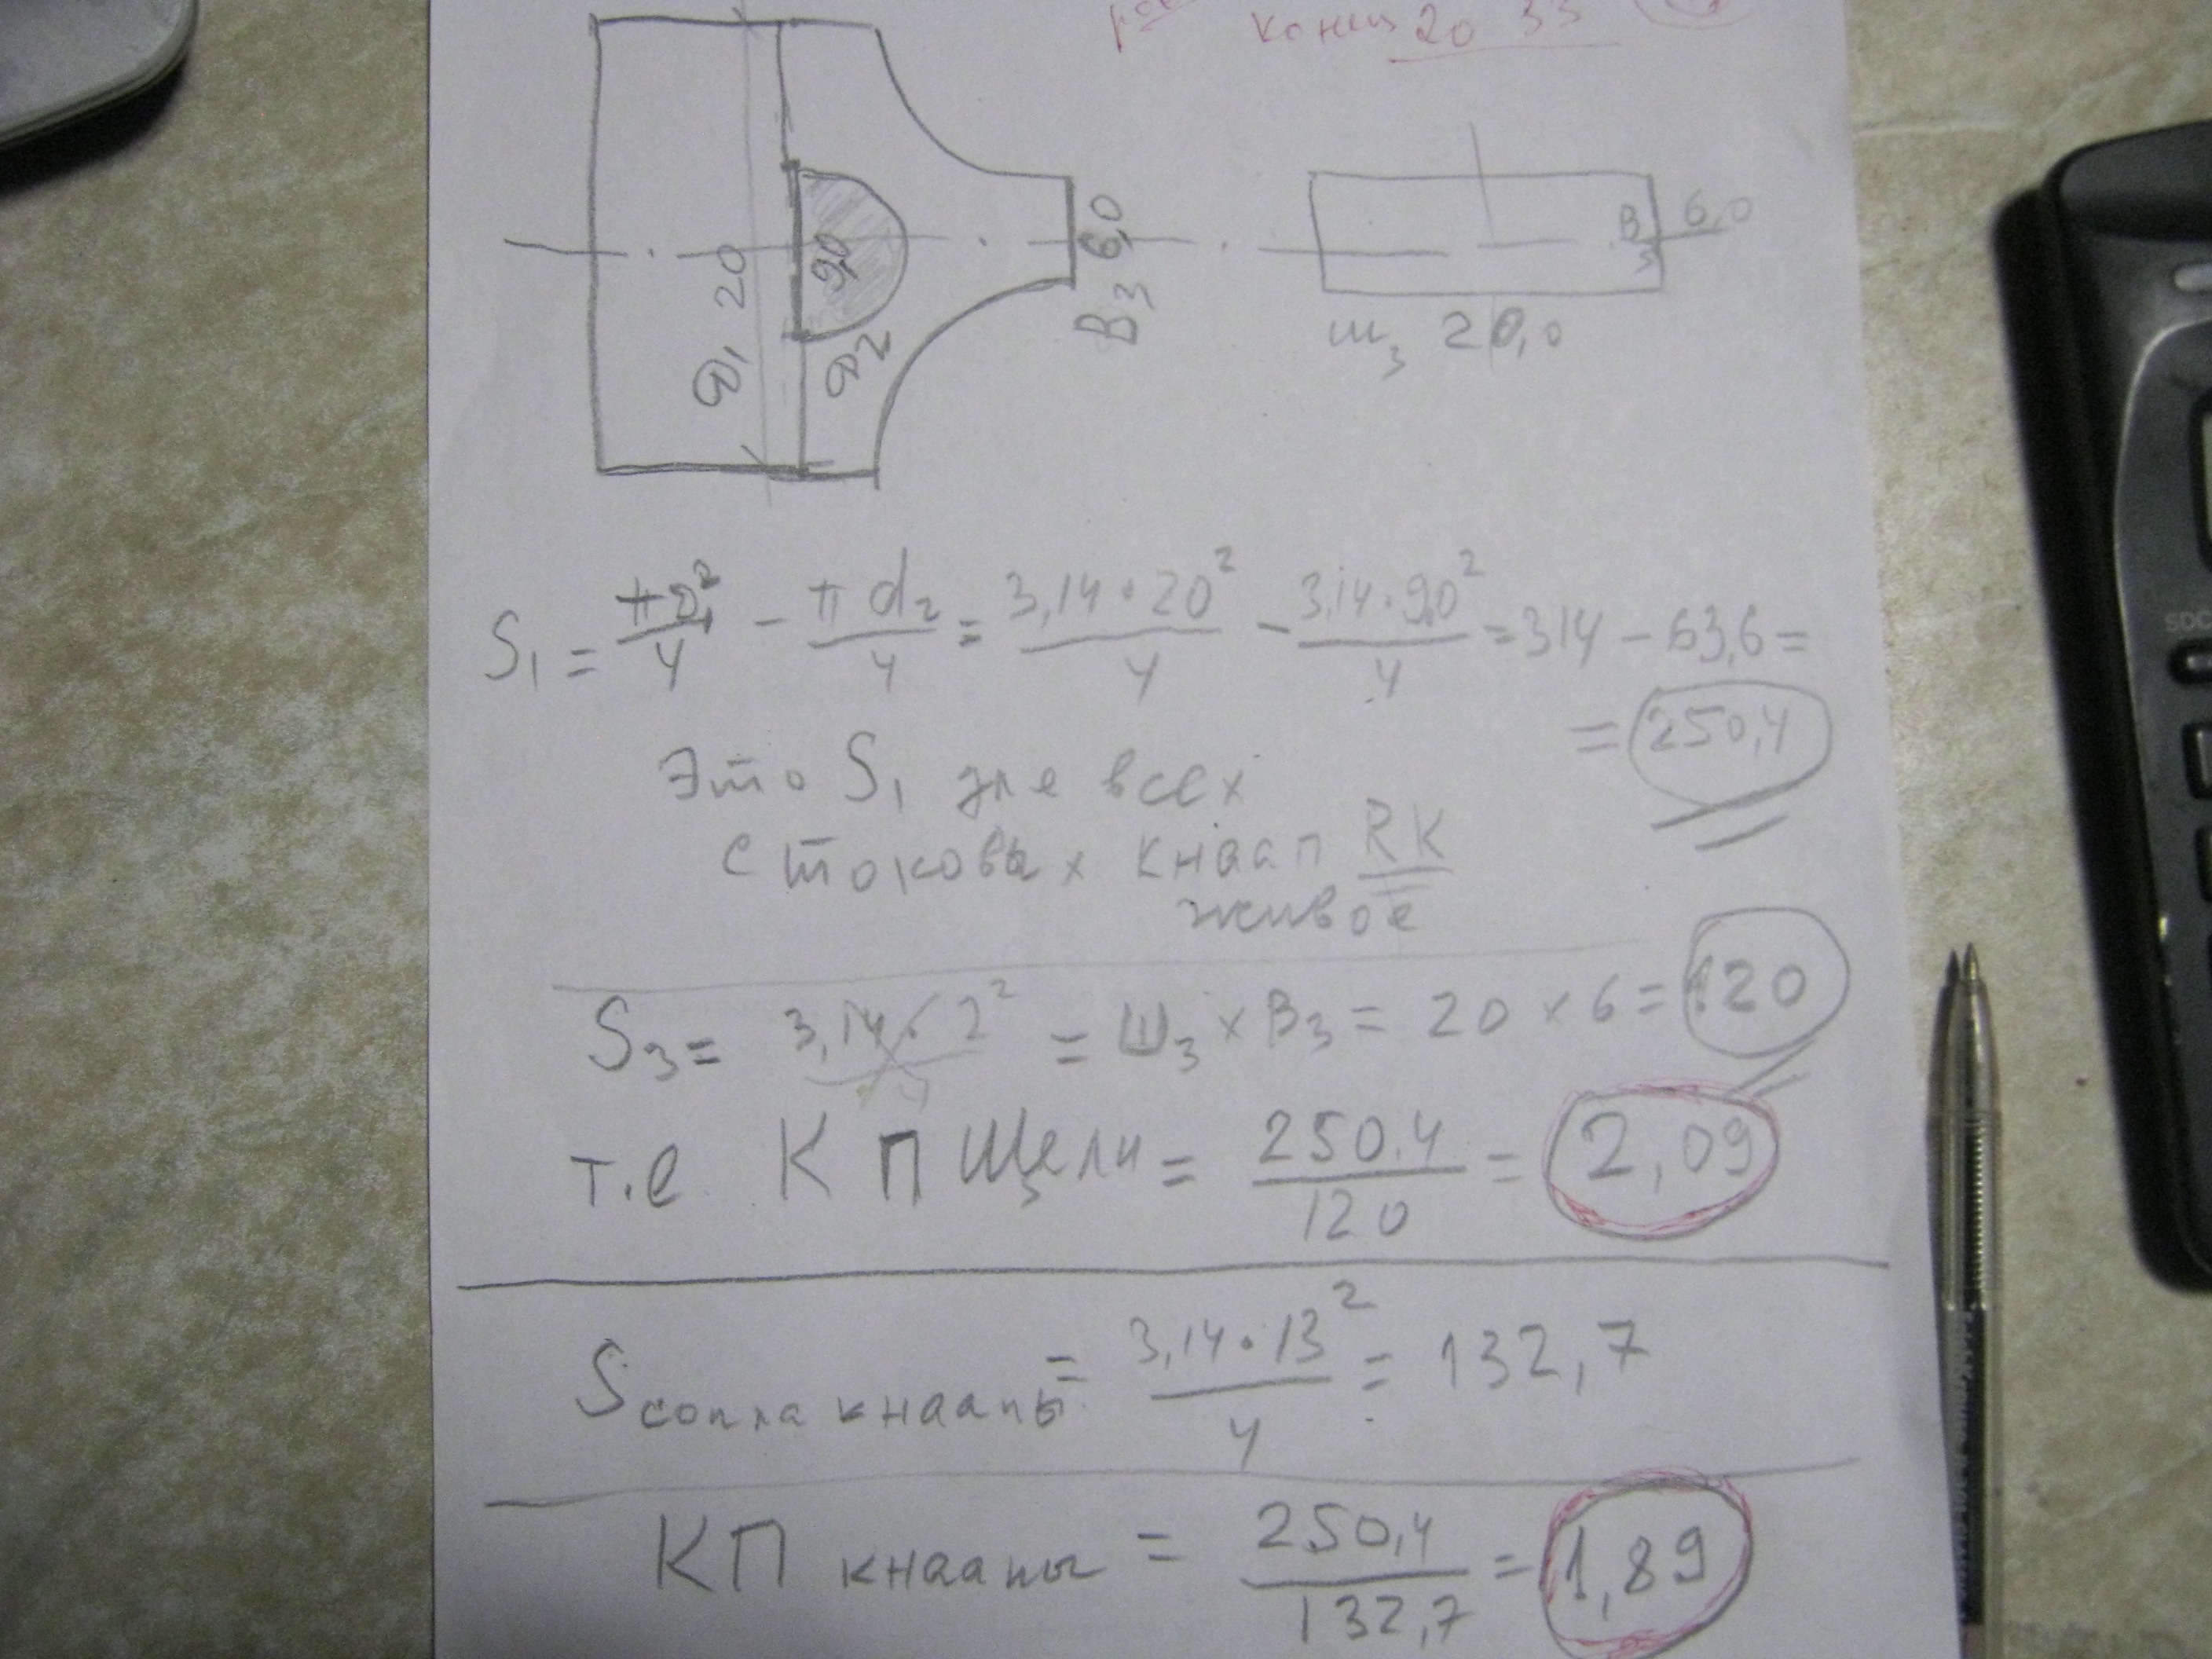 конец 20 33
Ф₁ 20
9,0
Ф₂
В₃ 6,0
В₃ 6,0
ш₃ 20,0
S₁ = πD₁²/4 − πd₂/4 = 3,14·20²/4 − 3,14·9,0²/4 = 314 − 63,6 =
= 250,4
Это S₁ для всех
стоковых кнаап RK
живое
S₃ = 3,14·2²/4 = Ш₃ × В₃ = 20 × 6 = 120
т.е. КП щели = 250.4/120 = 2,09
S сопла кнаапы = 3,14·13²/4 = 132,7
КП кнаапы = 250,4/132,7 = 1,89